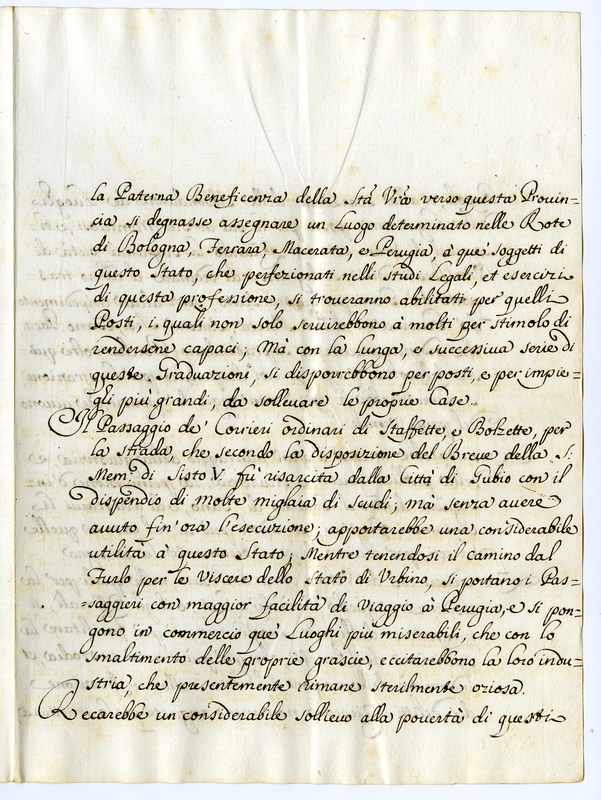 la Paterna Beneficenza della Stà Vrà verso questa Provin=
cia si degnasse assegnare un Luogo determinato nelle Rote
di Bologna, Ferrara, Macerata, e Perugia, à que' soggetti di
questo Stato, che perfezionati nelli studi Legali, et esercizi
di questa professione, si troueranno abilitati per quelli
Posti, i quali non solo seruirebbono à molti per stimolo di
rendersene capaci; Mà con la lunga, e successiua serie di
queste Graduazioni, si disporrebbono per posti, e per impie=
gli più grandi, da solleuare le proprie Case.
Il Passaggio de' Corrieri ordinari di Staffette, e Bolzette, per
la strada, che secondo la disposizione del Breue della S:
Mem: di Sisto V. fù risarcita dalla Città di Gubio con il
dispendio di molte migliaia di scudi; mà senza auere
auuto fin' ora l'esecuzione; apportarebbe una considerabile
utilità à questo Stato; Mentre tenendosi il camino dal
Furlo per le Viscere dello Stato di Urbino, si portano i Pas=
=saggieri con maggior facilità di Viaggio à Perugia, e si pon=
gono in commercio que' Luoghi più miserabili, che con lo
smaltimento delle proprie grascie, eccitarebbono la loro indu=
stria, che presentemente rimane sterilmente oziosa.
Recarebbe un considerabile sollieuo alla pouertà di questi